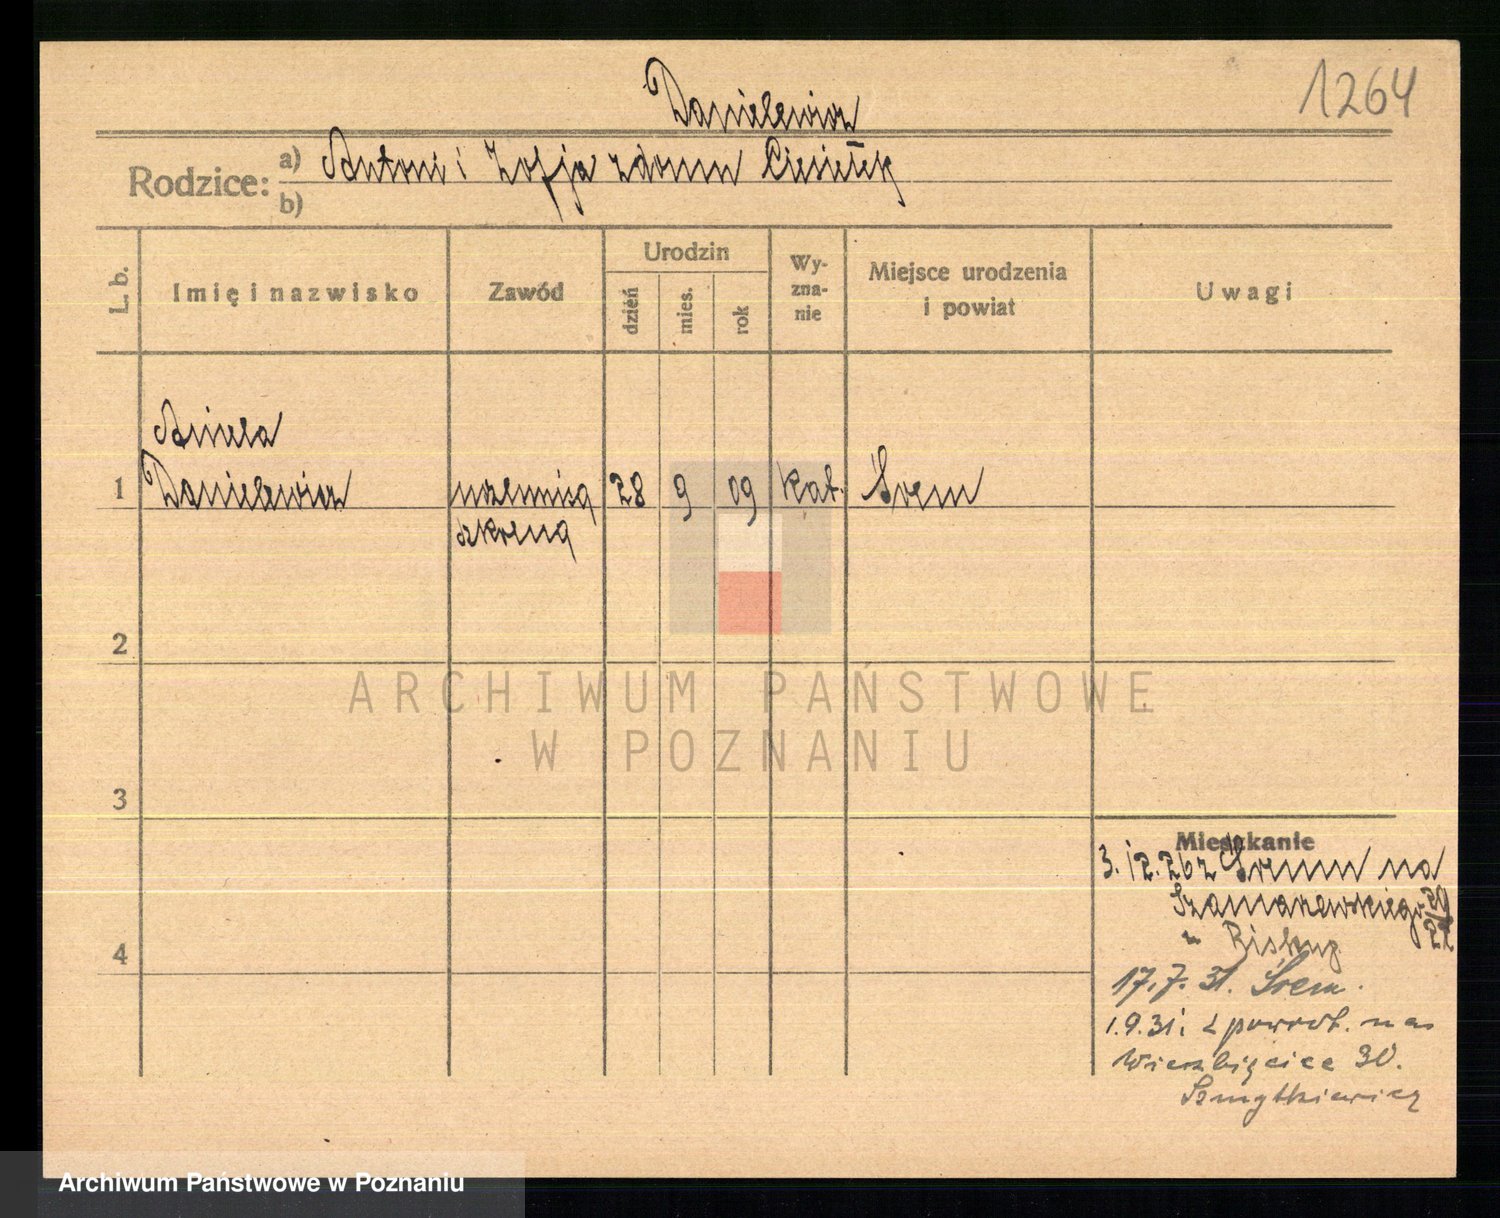 1264
Danielewicz
Rodzice:
a) Antoni i Zofja z domu Ciesiełek
b)
L. b.
Imię i nazwisko
Zawód
Urodzin
dzień
mies.
rok
Wy-
zna-
nie
Miejsce urodzenia
i powiat
Uwagi
Aniela
1 Danielewicz uczennica 28 9 09 kat. Śrem
szkolna
2
ARCHIWUM PAŃSTWOWE
W POZNANIU
3
Mieszkanie
3. 12. 26 z Śremu na
Szamarzewskiego 29
22
u Biskup
17.7.31. Śrem.
1.9.31. z powrot. na
Wierzbięcice 30.
Szmytkiewicz
4
Archiwum Państwowe w Poznaniu